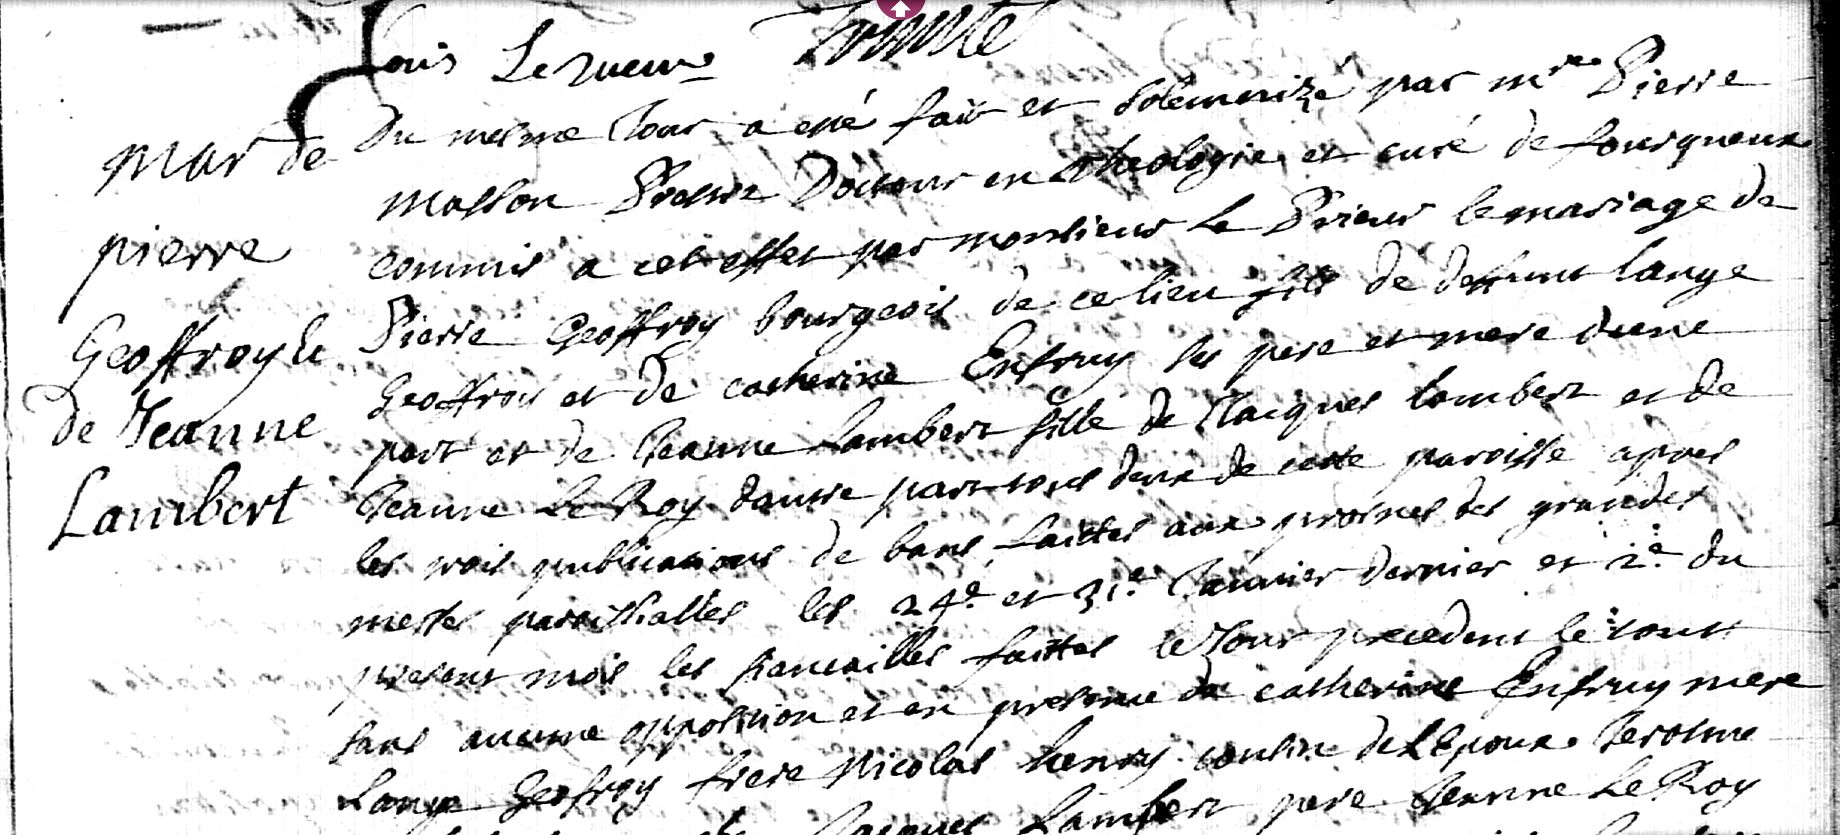 Louis Lesueur
Du mesme Jour a esté fait et solemnizé par mre Pierre
masson Prestre Docteur en theologie et curé de fourqueux
commis a cet effet par monsieur le Prieur le mariage de
Pierre Geoffroy bourgeois de ce lieu fils de deffunt Lange
Geoffroy et de catherine Enfruy ses pere et mere dune
part et de Jeanne Lambert fille de Jacques Lambert et de
Jeanne Le Roy dautre part tous deux de cette paroisse apres
les trois publications de bans faittes aux prosnes des grandes
messes paroissialles les 24e et 31e Januier dernier et 2e du
present mois les fiancailles faittes le Jour precedent le tout
sans aucune opposition et en presence de catherine Enfruy mere
Lange Geofroy frere Nicolas henry cousin de L'Epoux Jerosme
Jacques Lambert pere Jeanne Le Roy
mar de
pierre
Geoffroy &
de Jeanne
Lambert